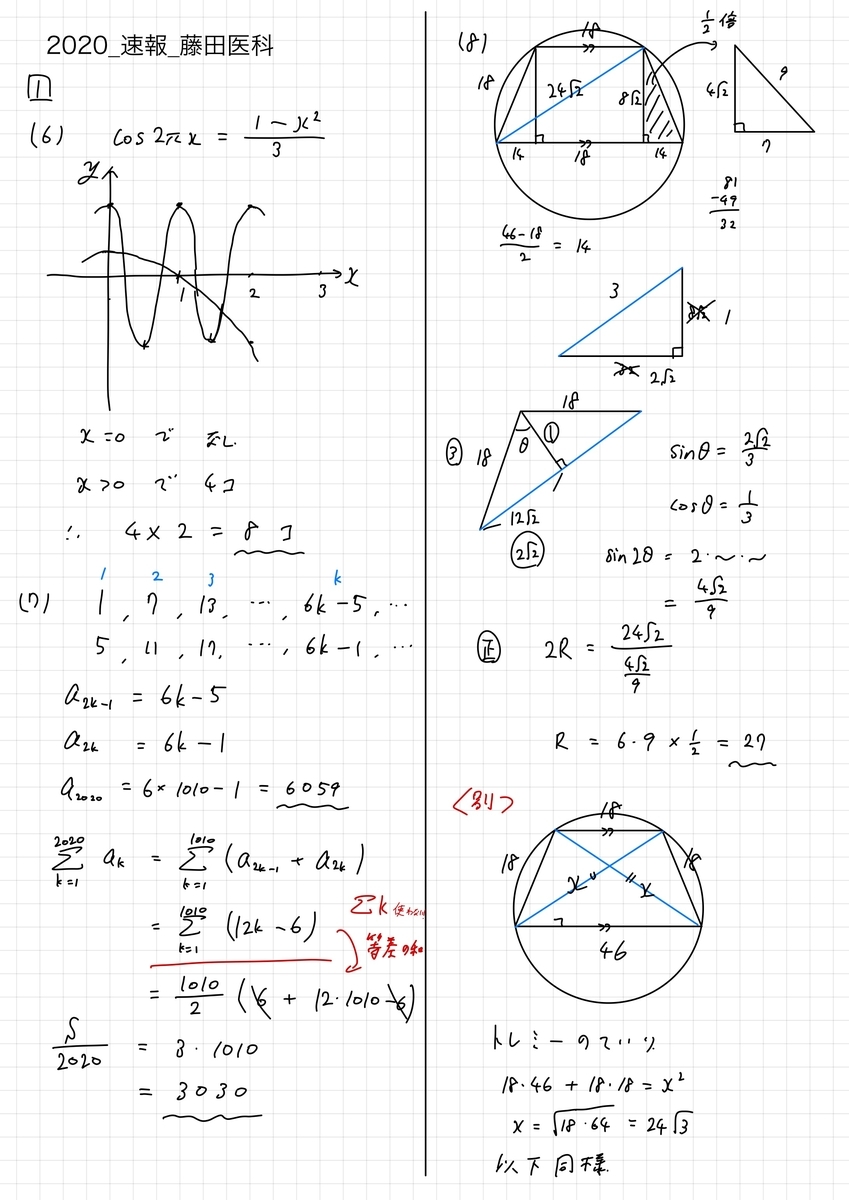 2020_速報_藤田医科
1
(6) cos 2πx = (1 - x²)/3
y
x
1 2 3
x=0 で なし
x>0 で 4コ
∴ 4×2 = 8コ
1 2 3 k
(7) 1, 7, 13, …, 6k-5, …
5, 11, 17, …, 6k-1, …
a_{2k-1} = 6k-5
a_{2k} = 6k-1
a_{2020} = 6×1010-1 = 6059
∑_{k=1}^{2020} a_k = ∑_{k=1}^{1010} (a_{2k-1} + a_{2k})
= ∑_{k=1}^{1010} (12k-6)
∑k 使わない
等差の和
= 1010/2 (6 + 12·1010-6)
S/2020 = 3·1010
= 3030
(8)
18
18
24√2
8√2
14 18 14
1/2 倍
4√2
9
7
81
-49
32
(46-18)/2 = 14
3
8√2 1
2√2
18
③ 18 θ ①
12√2
2√2
sinθ = 2√2/3
cosθ = 1/3
sin2θ = 2·~·~
= 4√2/9
正 2R = 24√2/(4√2/9)
R = 6·9×1/2 = 27
<別>
18
18
18
x x
46
トレミーのていり
18·46 + 18·18 = x²
x = √(18·64) = 24√3
以下同様